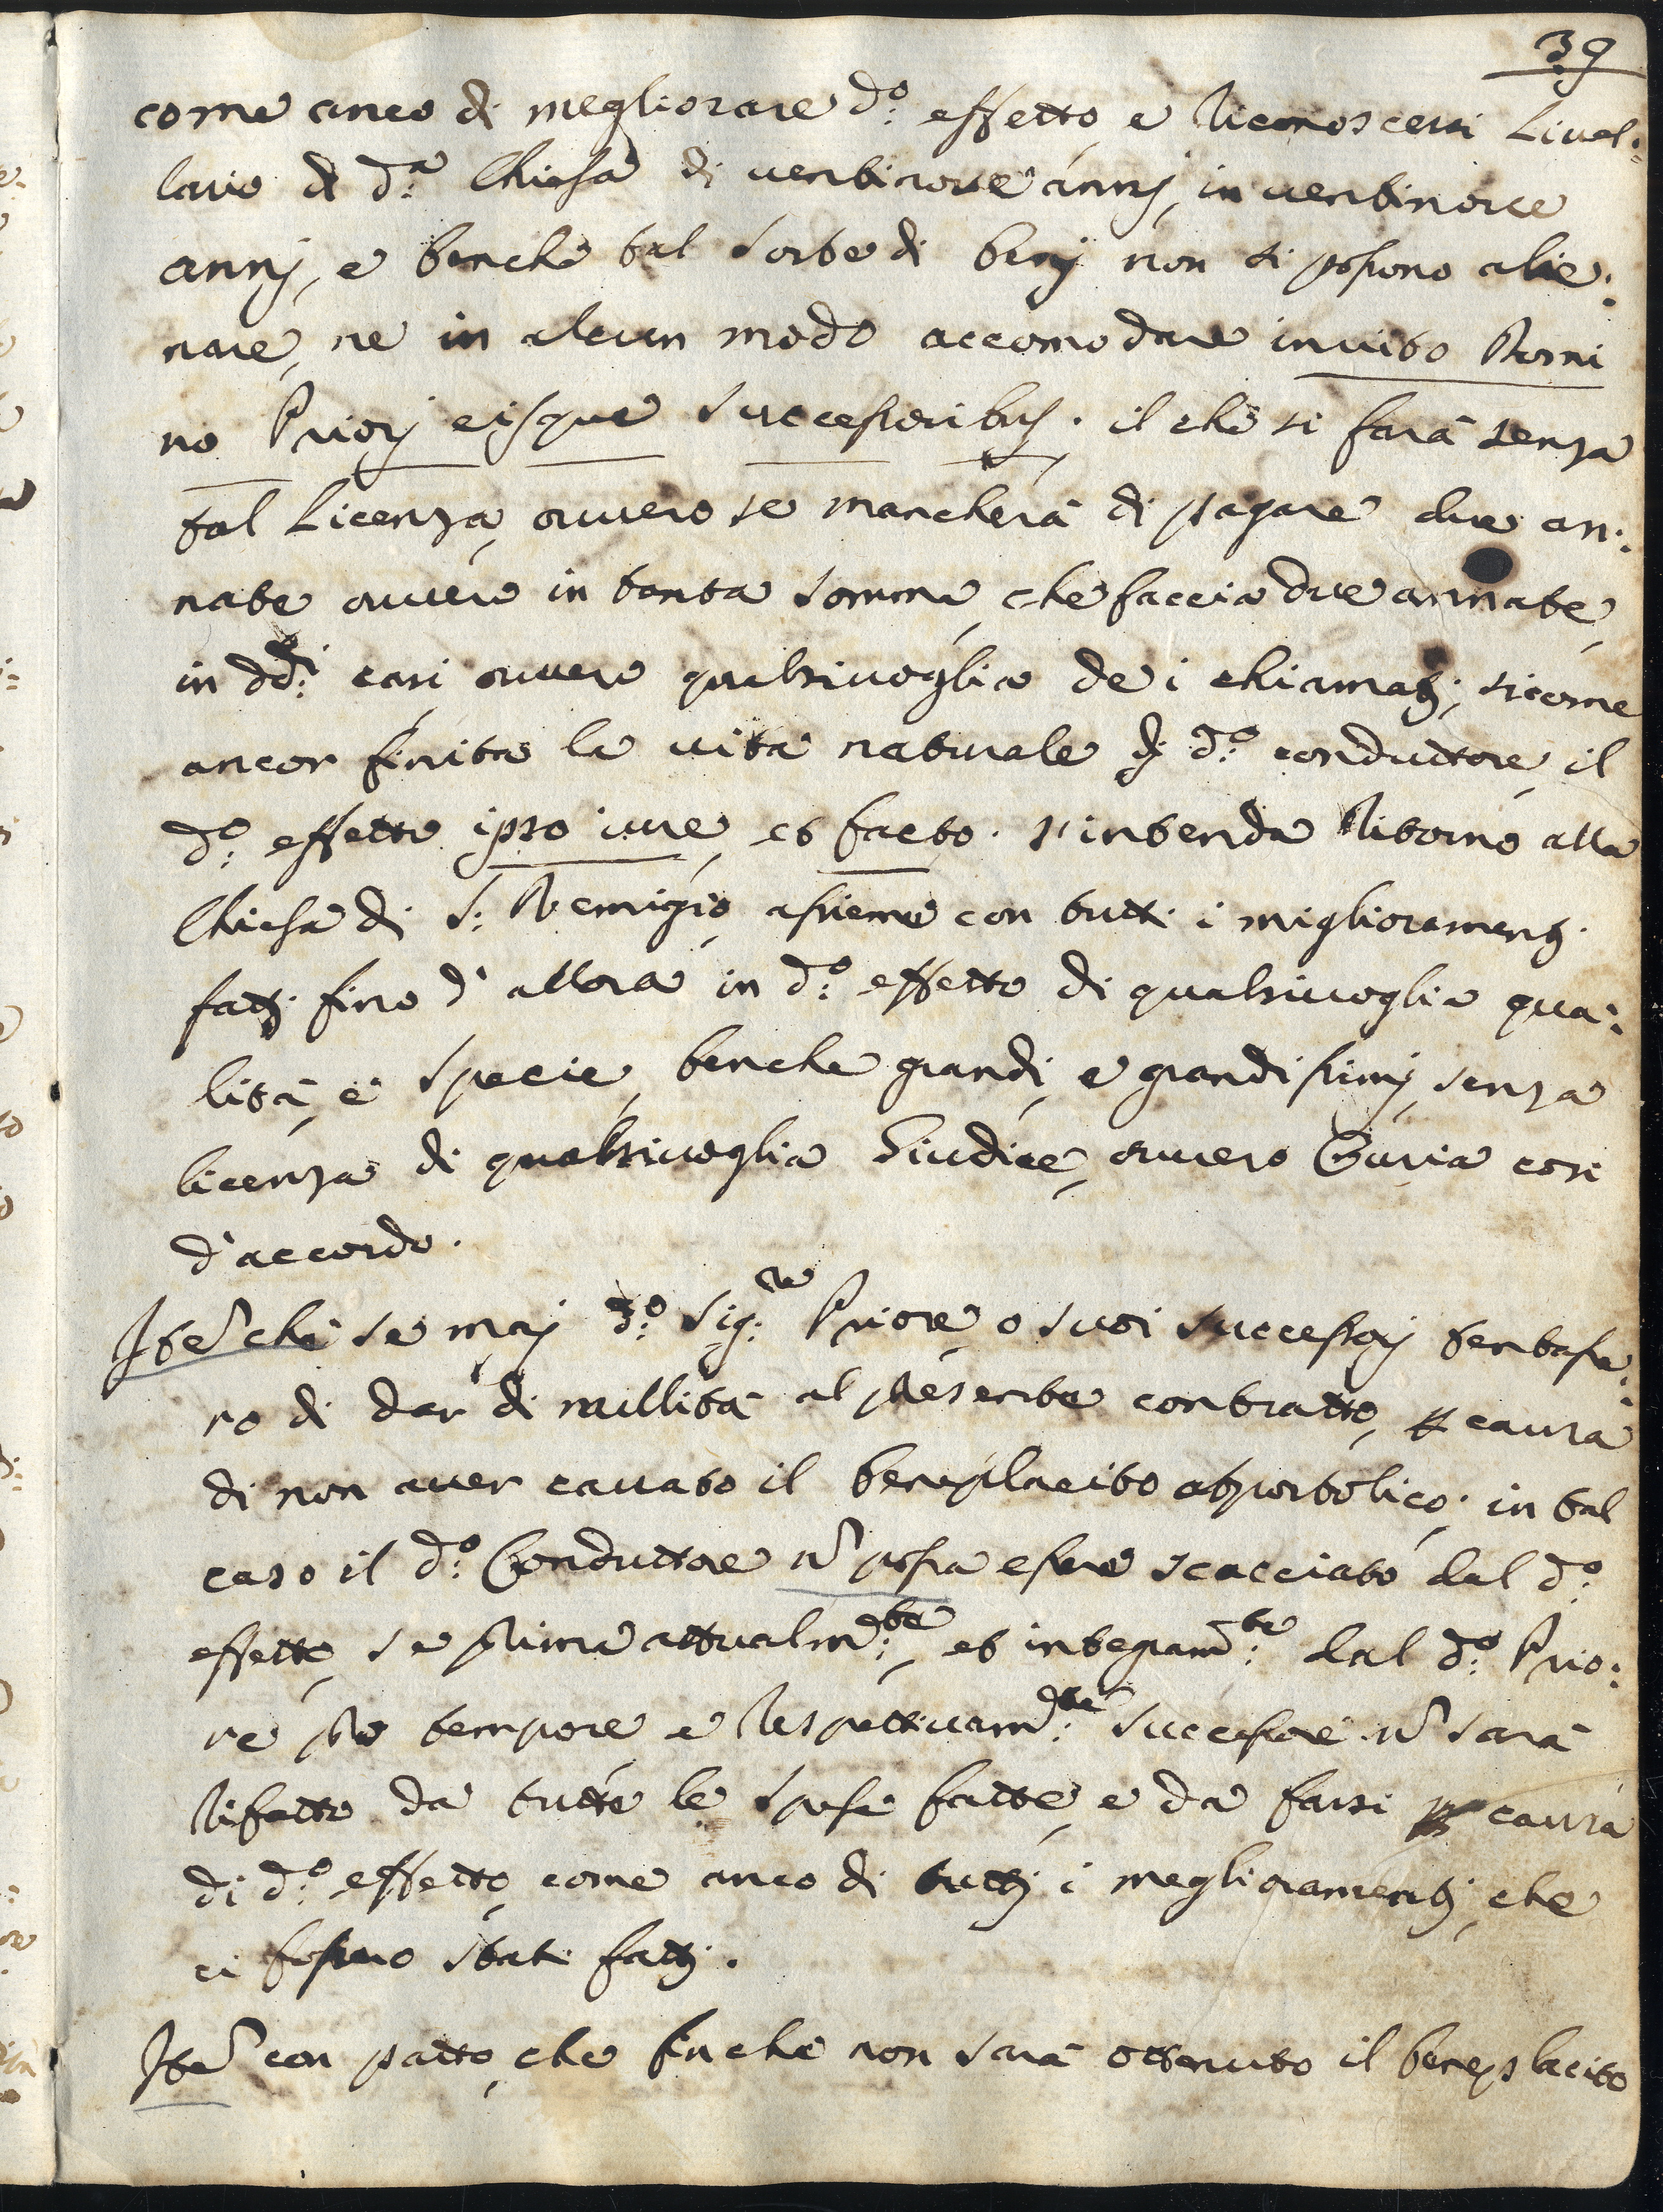 39
come anco di megliorare d.º effetto, e riconoscersi Livel:
lario di d.ª Chiesa di ventinove annj, in ventinove
annj, e benche tal sorte di benj non si possono alie:
nare, ne in alcun modo accomodare invito Domi
no Priorj eisque successoribus. il che si farà senza
tal Licenza, ovvero se mancherà di pagare due an:
nate ovvero in tanta somma, che faccia due annate,
in dd.i casi ovvero qualsivoglia de i chiamatj; sicome
ancor finita la vita naturale dj d.º conduttore, il
d.º effetto ipso iure, et facto. s'intenda ritorno alla
Chiesa di S: Remigio, assieme con tutti i miglioramentj.
fattj fino d'allora in d.º effetto di qualsivoglia qua:
lità, e specie, benche grandi, e grandissimj, senza
licenza di qualsivoglia Giudice, ovvero Curia così
d'accordo.
Itē che se maj d.º Sig.re Priore, o suoi successorj tentasse:
ro di dar di nullità al presente contratto, p causa
di non aver cavato il beneplacito appostolico. in tal
caso il d.º Conduttore ñ possa essere scacciato dal d.º
effetto, se prima attualm.te, et integram.te dal d.º Prio:
re pro tempore e respettivam.te successore ñ sarà
rifatto da tutte le spese fatte, e da farsi p causa
di d.º effetto, come anco di tuttj i megliora mentj, che
ci fossero stati fattj.
Itē con patto, che finche non sarà ottenuto il beneplacito